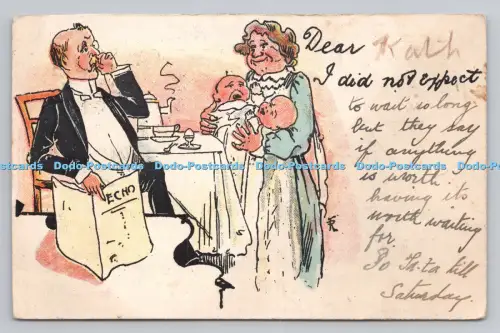 Dear Kath
I did not expect
to wait so long
but they say
if anything
is worth
having its
worth waiting
for.
So Ta-ta till
Saturday.
ECHO
Dodo-Postcards Dodo-Postcards Dodo-Postcards Dodo-Postcards Dodo-Postcards